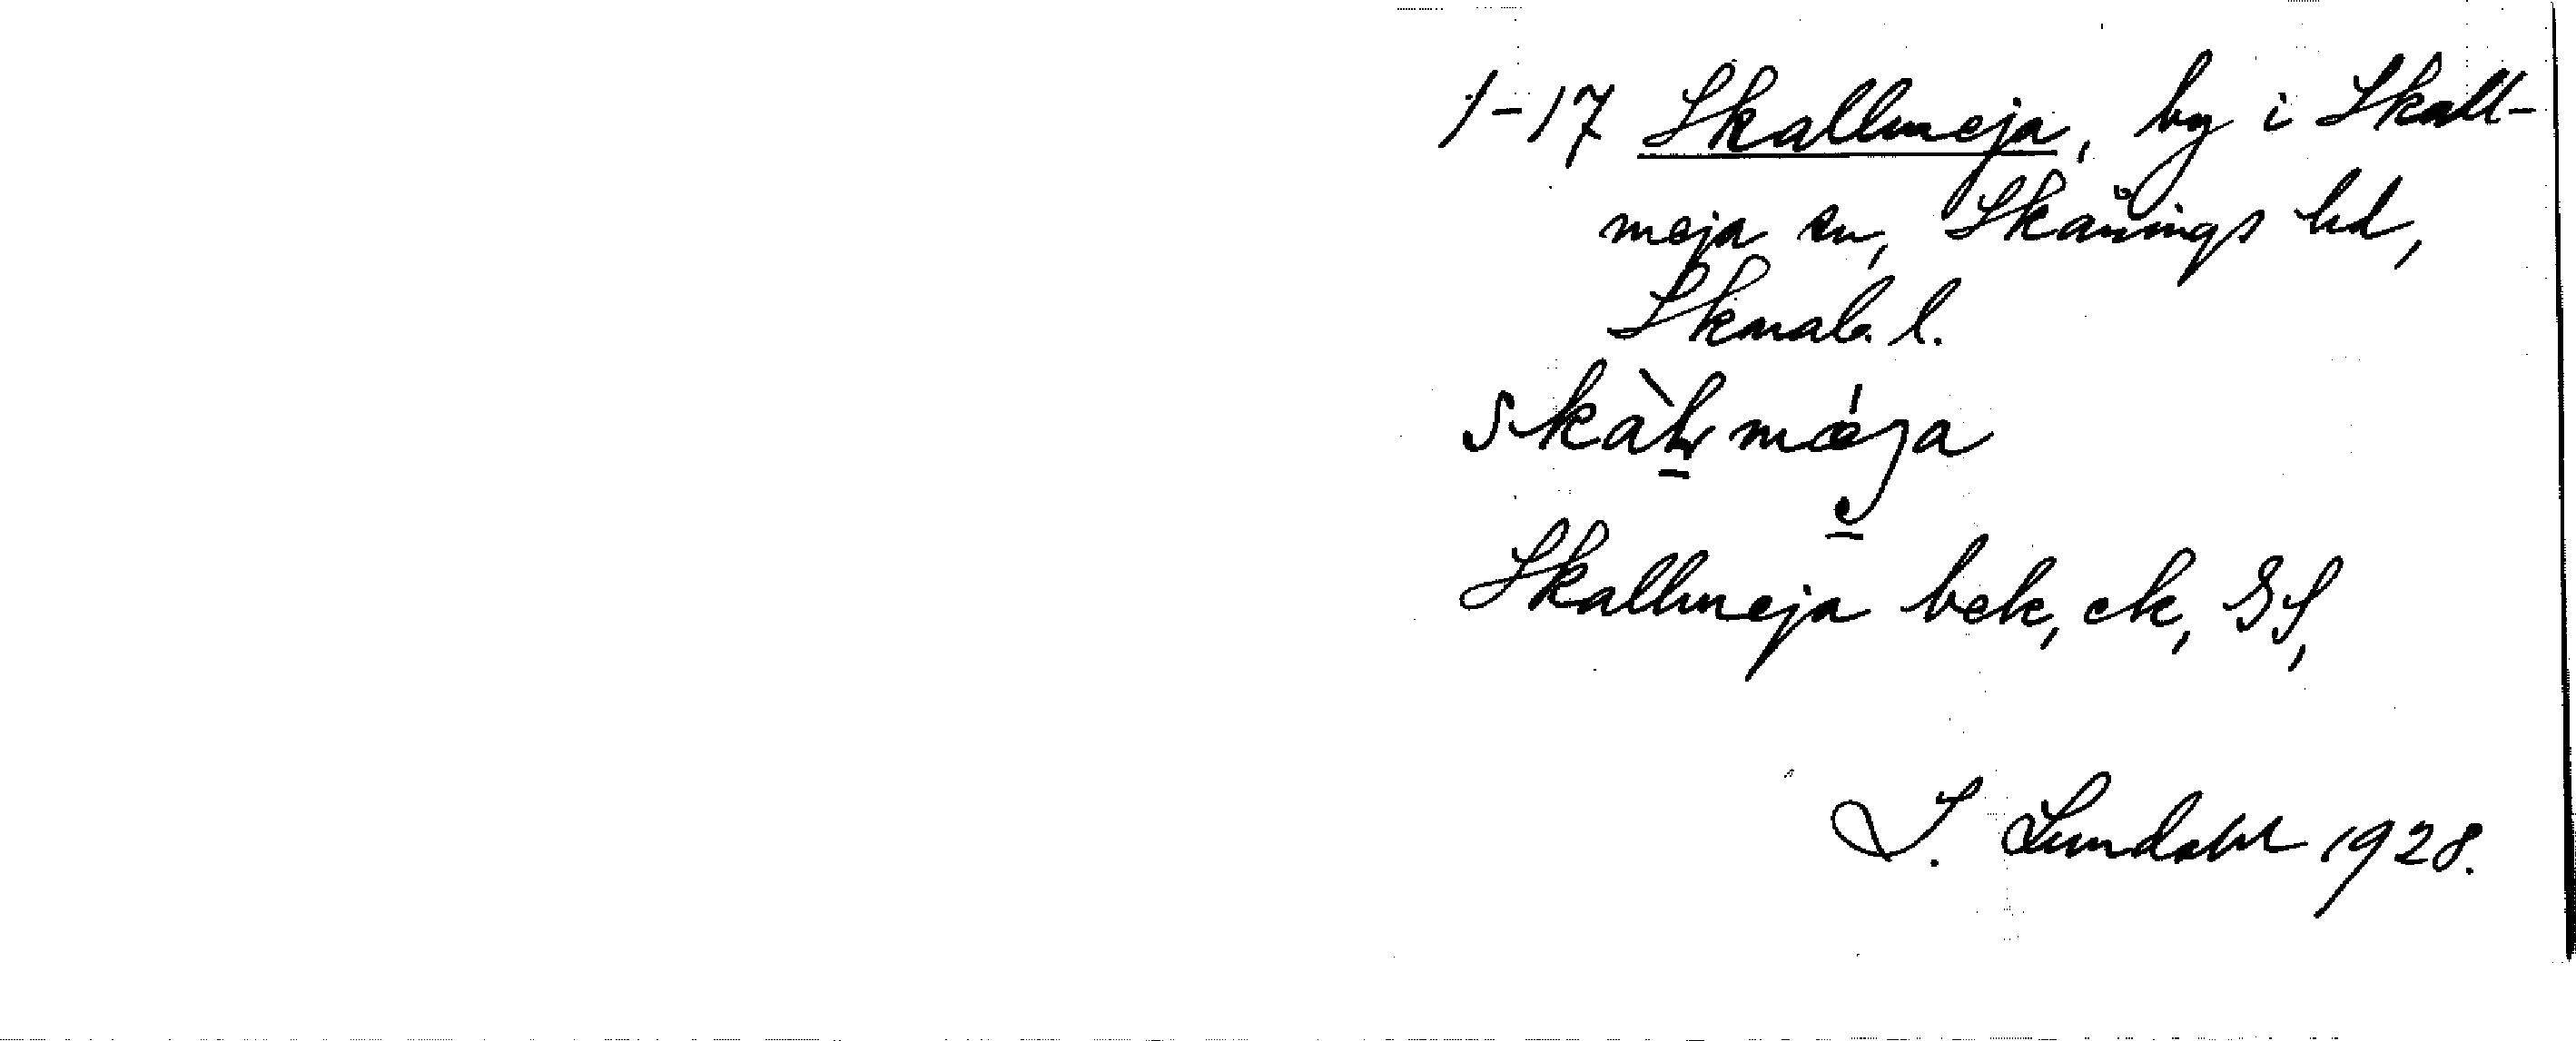 1-17 Skallmeja, by i Skall-
meja sn, Skånings hd,
Skarab. l.
skàlmǽja
Skallmeja bek, ek, GS,
I. Lundahl 1928.